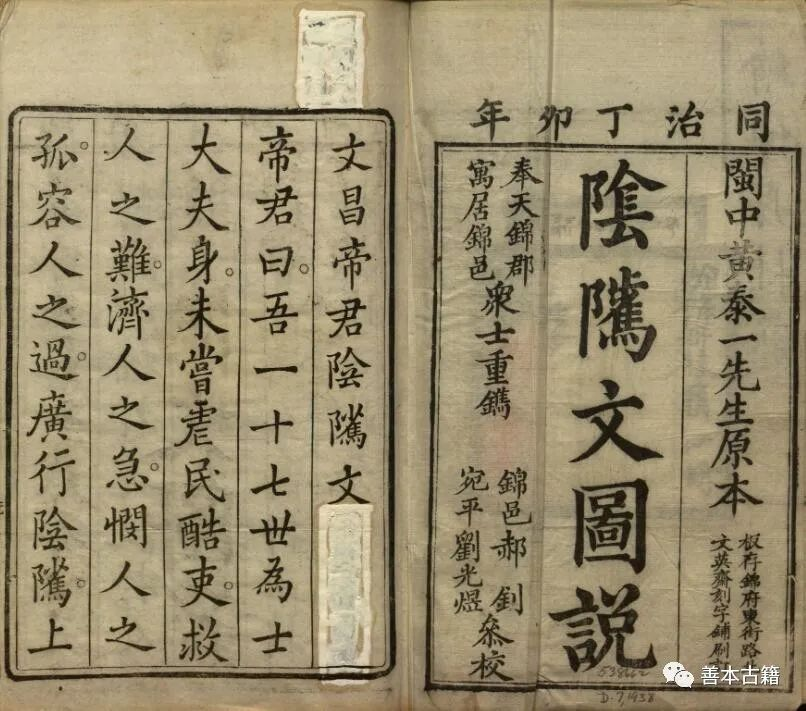 同治丁卯年
閩中黃泰一先生原本
板存錦府東街路
文英齋刻字鋪刷
陰隲文圖說
奉天錦郡
寓居錦邑
衆士重鐫
錦邑郝釗
宛平劉光煜
叅校
文昌帝君陰隲文
帝君曰吾一十七世為士
大夫身未嘗虐民酷吏救
人之難濟人之急憫人之
孤容人之過廣行陰隲上
538662
D.7,1938
善本古籍